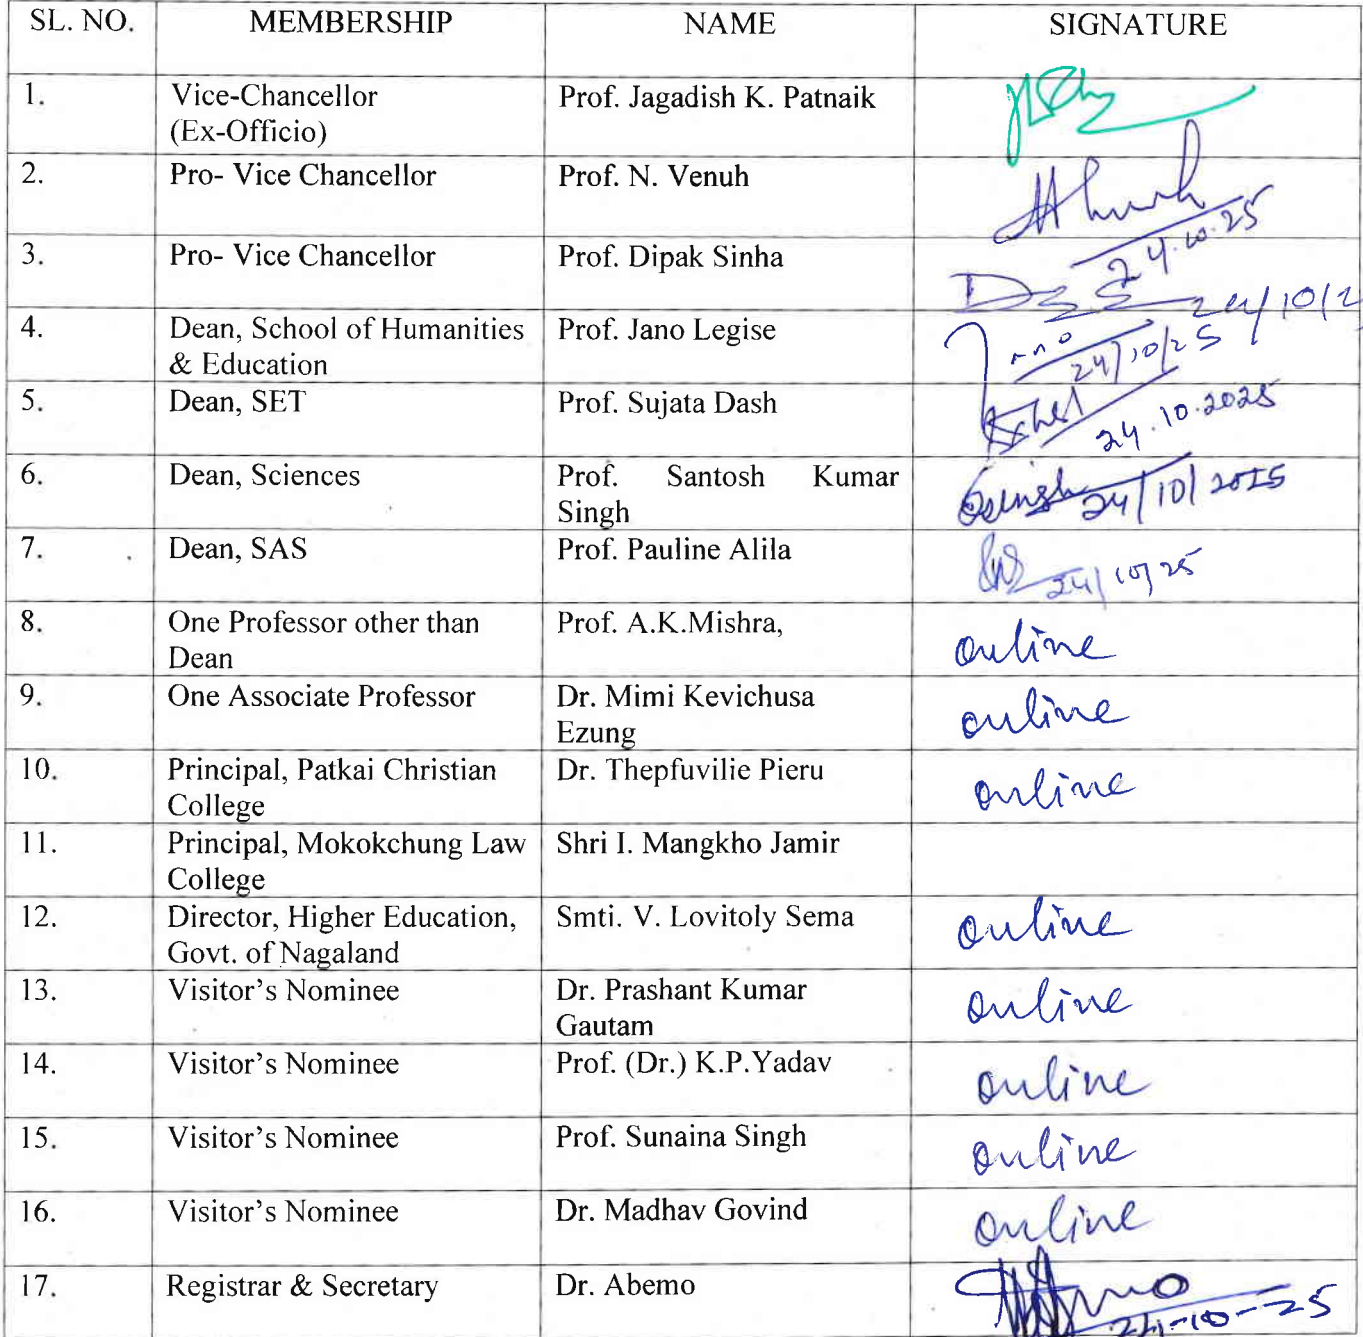 SL. NO. MEMBERSHIP NAME SIGNATURE
1. Vice-Chancellor Prof. Jagadish K. Patnaik
(Ex-Officio)
2. Pro- Vice Chancellor Prof. N. Venuh
24.10.25
3. Pro- Vice Chancellor Prof. Dipak Sinha
24/10/2
4. Dean, School of Humanities Prof. Jano Legise Jano
& Education 24/10/25
5. Dean, SET Prof. Sujata Dash
24.10.2025
6. Dean, Sciences Prof. Santosh Kumar 24/10/2025
Singh
7. Dean, SAS Prof. Pauline Alila 24/10/25
8. One Professor other than Prof. A.K.Mishra, online
Dean
9. One Associate Professor Dr. Mimi Kevichusa online
Ezung
10. Principal, Patkai Christian Dr. Thepfuvilie Pieru online
College
11. Principal, Mokokchung Law Shri I. Mangkho Jamir
College
12. Director, Higher Education, Smti. V. Lovitoly Sema online
Govt. of Nagaland
13. Visitor's Nominee Dr. Prashant Kumar online
Gautam
14. Visitor's Nominee Prof. (Dr.) K.P.Yadav online
15. Visitor's Nominee Prof. Sunaina Singh online
16. Visitor's Nominee Dr. Madhav Govind online
17. Registrar & Secretary Dr. Abemo
24-10-25